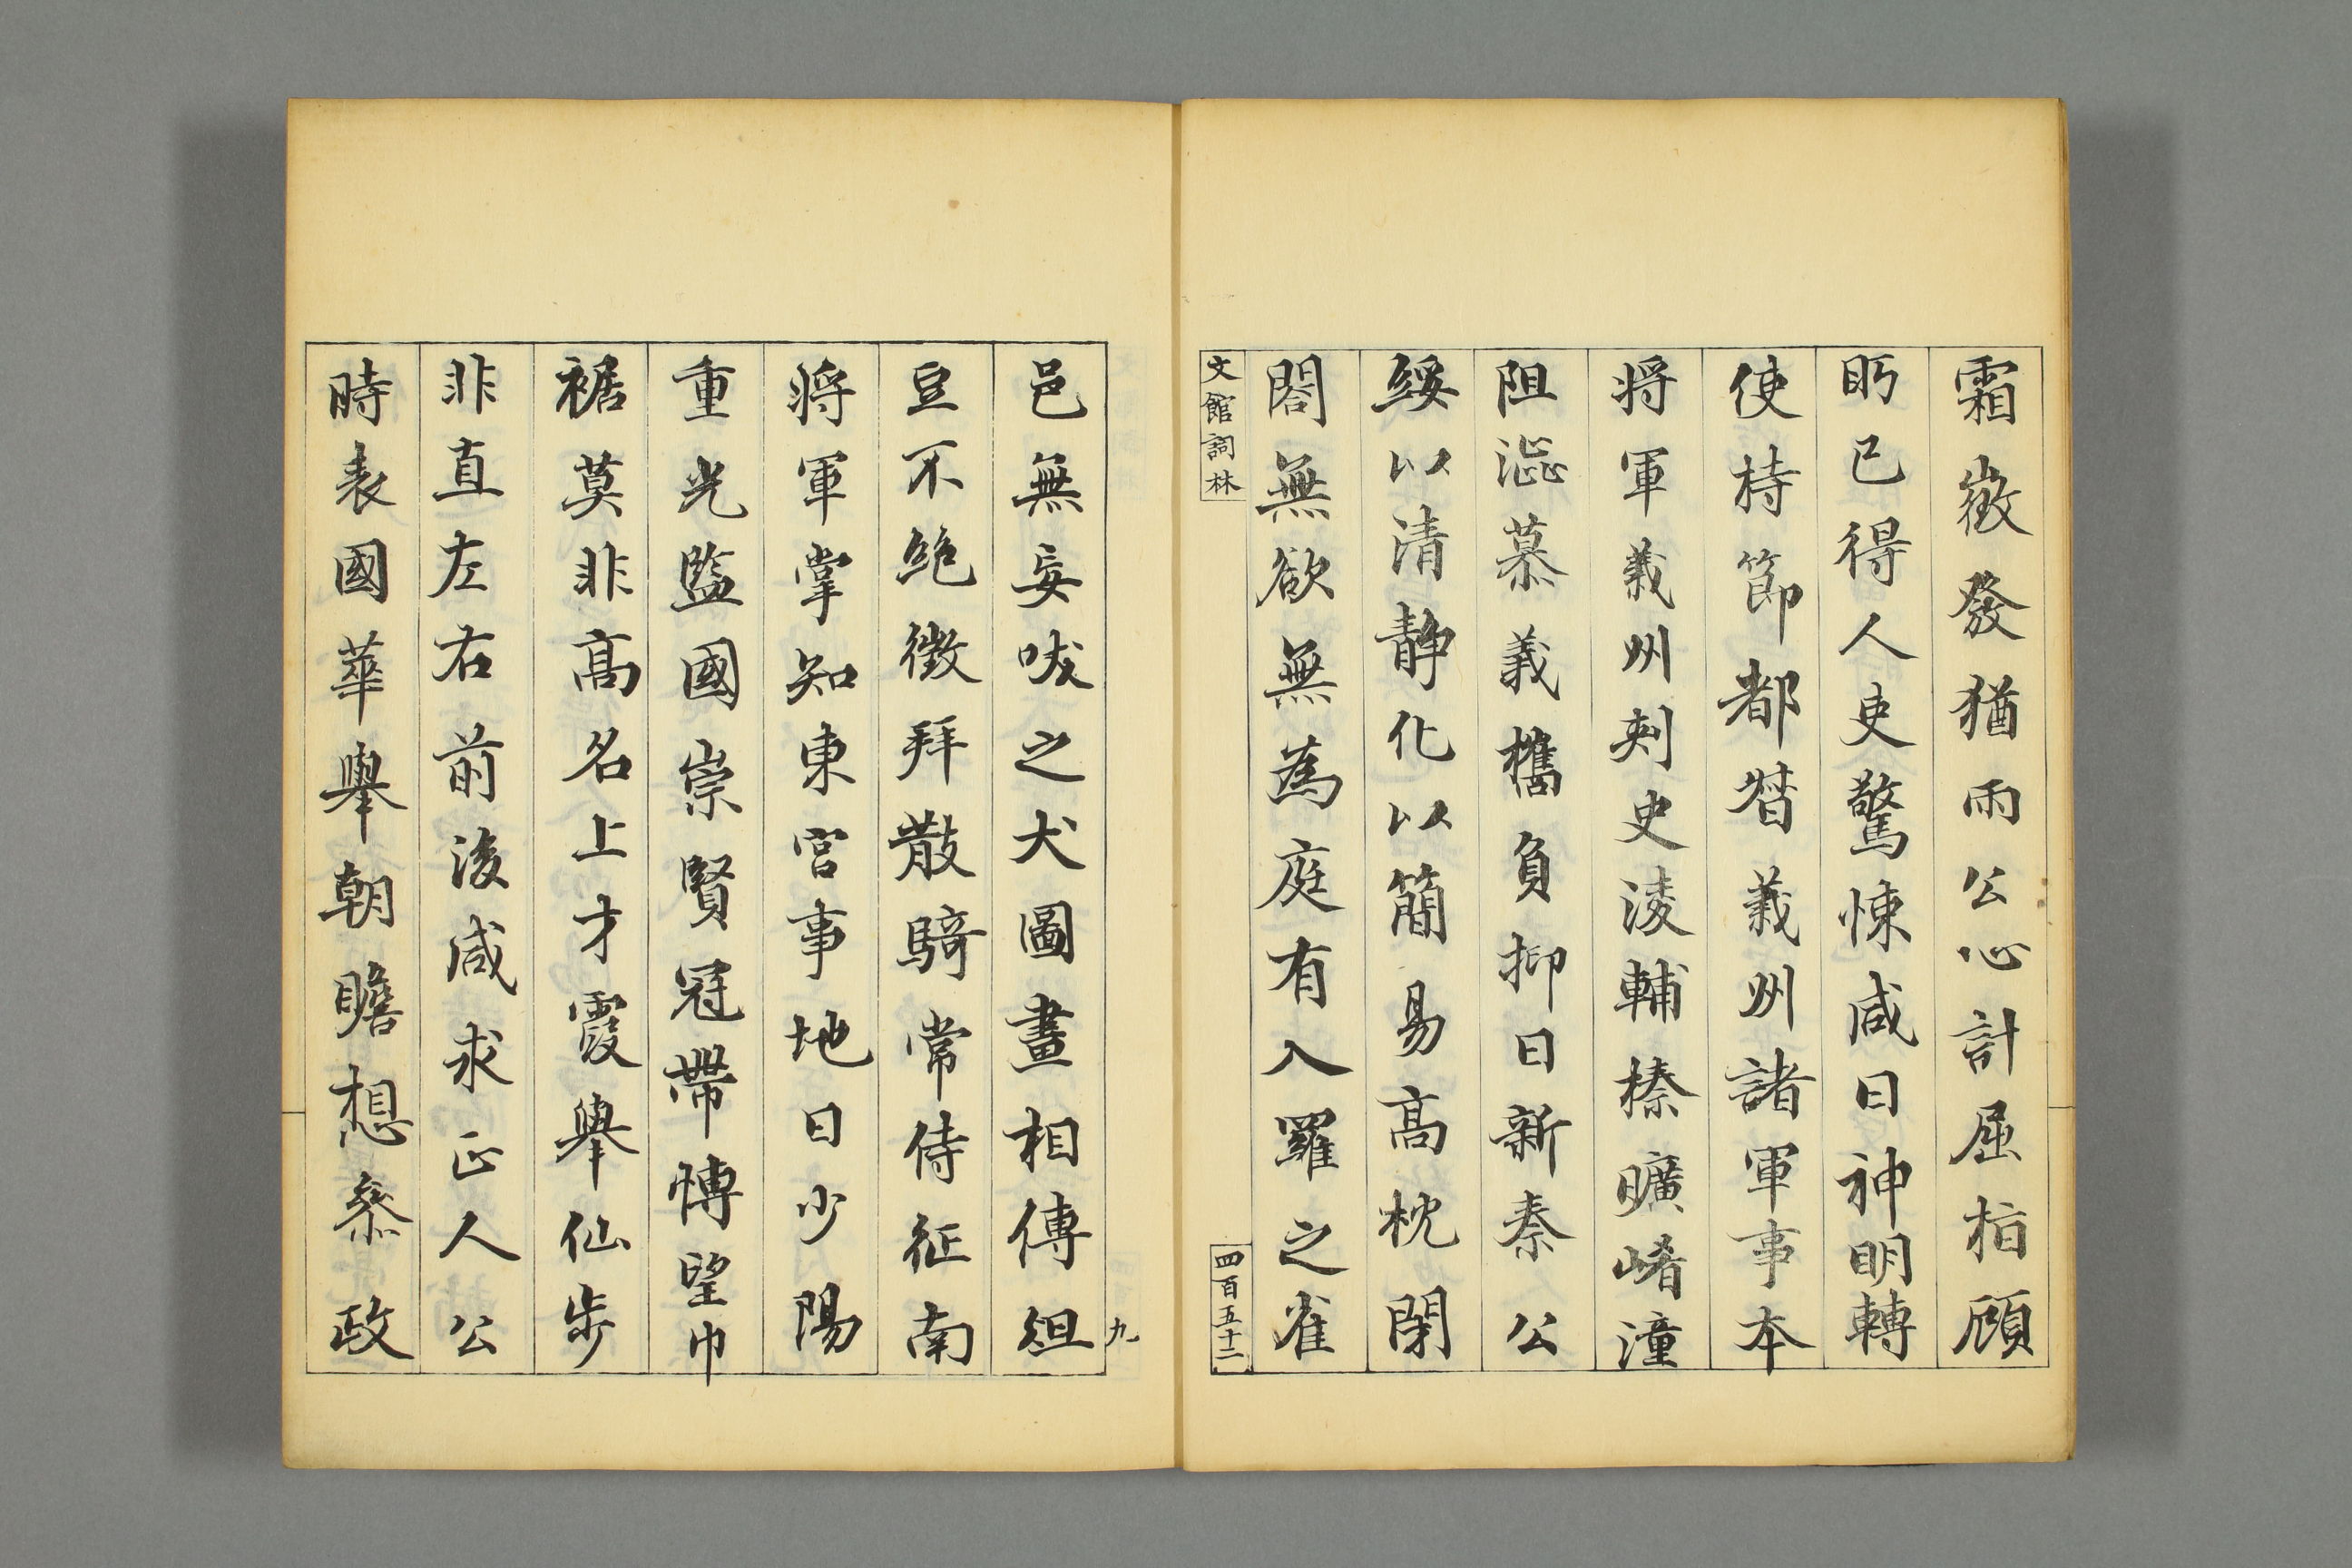 霜徵發猶雨公心計屈指顧
眄已得人吏驚悚咸曰神明轉
使持節都督義州諸軍事本
將軍義州刾史淩輔榛曠崤潼
阻澁慕義檇負抑日新秦公
綏以清静化以簡易高枕閉
閤無欲無為庭有入羅之雀
文館詞林
四百五十二
九
邑無妄吠之犬圖畫相傳俎
豆不絶徵拜散騎常侍征南
將軍掌知東宮事地曰少陽
重光監國崇賢冠帶愽望巾
裾莫非高名上才霞舉仙步
非直左右前後咸求正人公
時表國華舉朝瞻想叅政